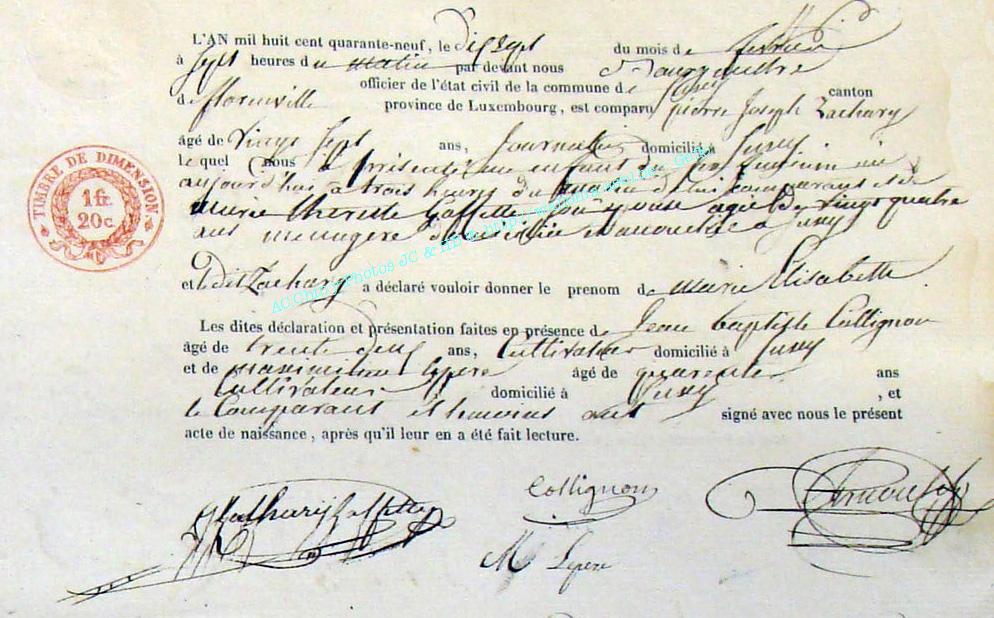 L'AN mil huit cent quarante-neuf, le dix sept du mois de fevrier
à sept heures du matin par devant nous
officier de l'état civil de la commune de canton
de florenville province de Luxembourg, est comparu pierre Joseph Zachary
âgé de vingt sept ans, Journalier domicilié à
le quel nous a présenté un enfant du sexe feminin né
aujourd'hui a trois heures du matin de lui comparant et de
marie therese Goffette son epouse agée de vingt quatre
ans menagere domiciliée
et le dit Zachary a déclaré vouloir donner le prenom de marie Elisabeth
Les dites déclaration et présentation faites en présence de Jean baptiste Collignon
âgé de trente deux ans, Cultivateur domicilié à
et de maximilien Lepere âgé de quarante ans
Cultivateur domicilié à , et
le Comparant et temoins ont signé avec nous le présent
acte de naissance, après qu'il leur en a été fait lecture.
TIMBRE DE DIMENSION
1 fr.
20 c.
Zachary Goffette
Collignon
M Lepere